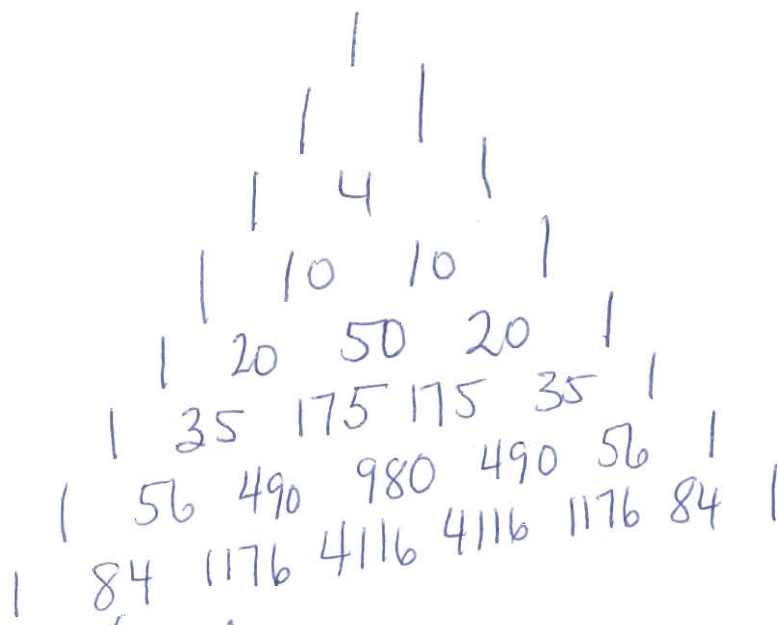 1
1 1
1 4 1
1 10 10 1
1 20 50 20 1
1 35 175 175 35 1
1 56 490 980 490 56 1
1 84 1176 4116 4116 1176 84 1